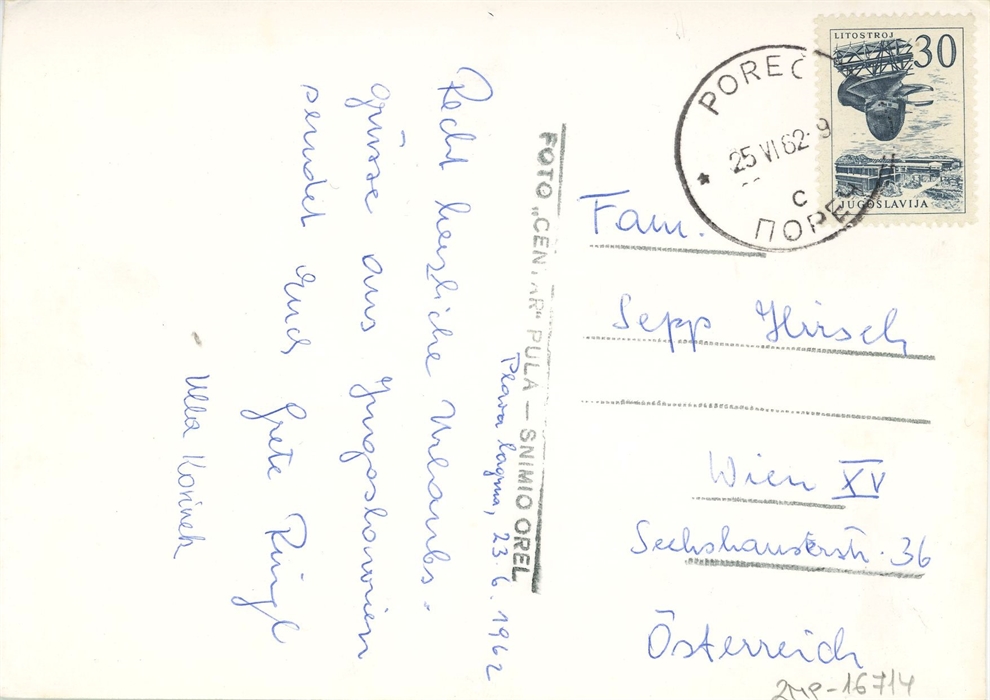 Plava laguna, 23. 6. 1962
Recht herzliche Urlaubs-
grüsse aus Jugoslawien
sendet Euch Grete Ringl
Ulla Kořinek
FOTO „CENTAR" PULA — SNIMIO OREL
LITOSTROJ
30
JUGOSLAVIJA
POREČ
25 VI 62· 9
c
ПОРЕЧ
Fam.
Sepp Hirsch
Wien XV
Sechshauserstr. 36
Österreich
2MP-16714